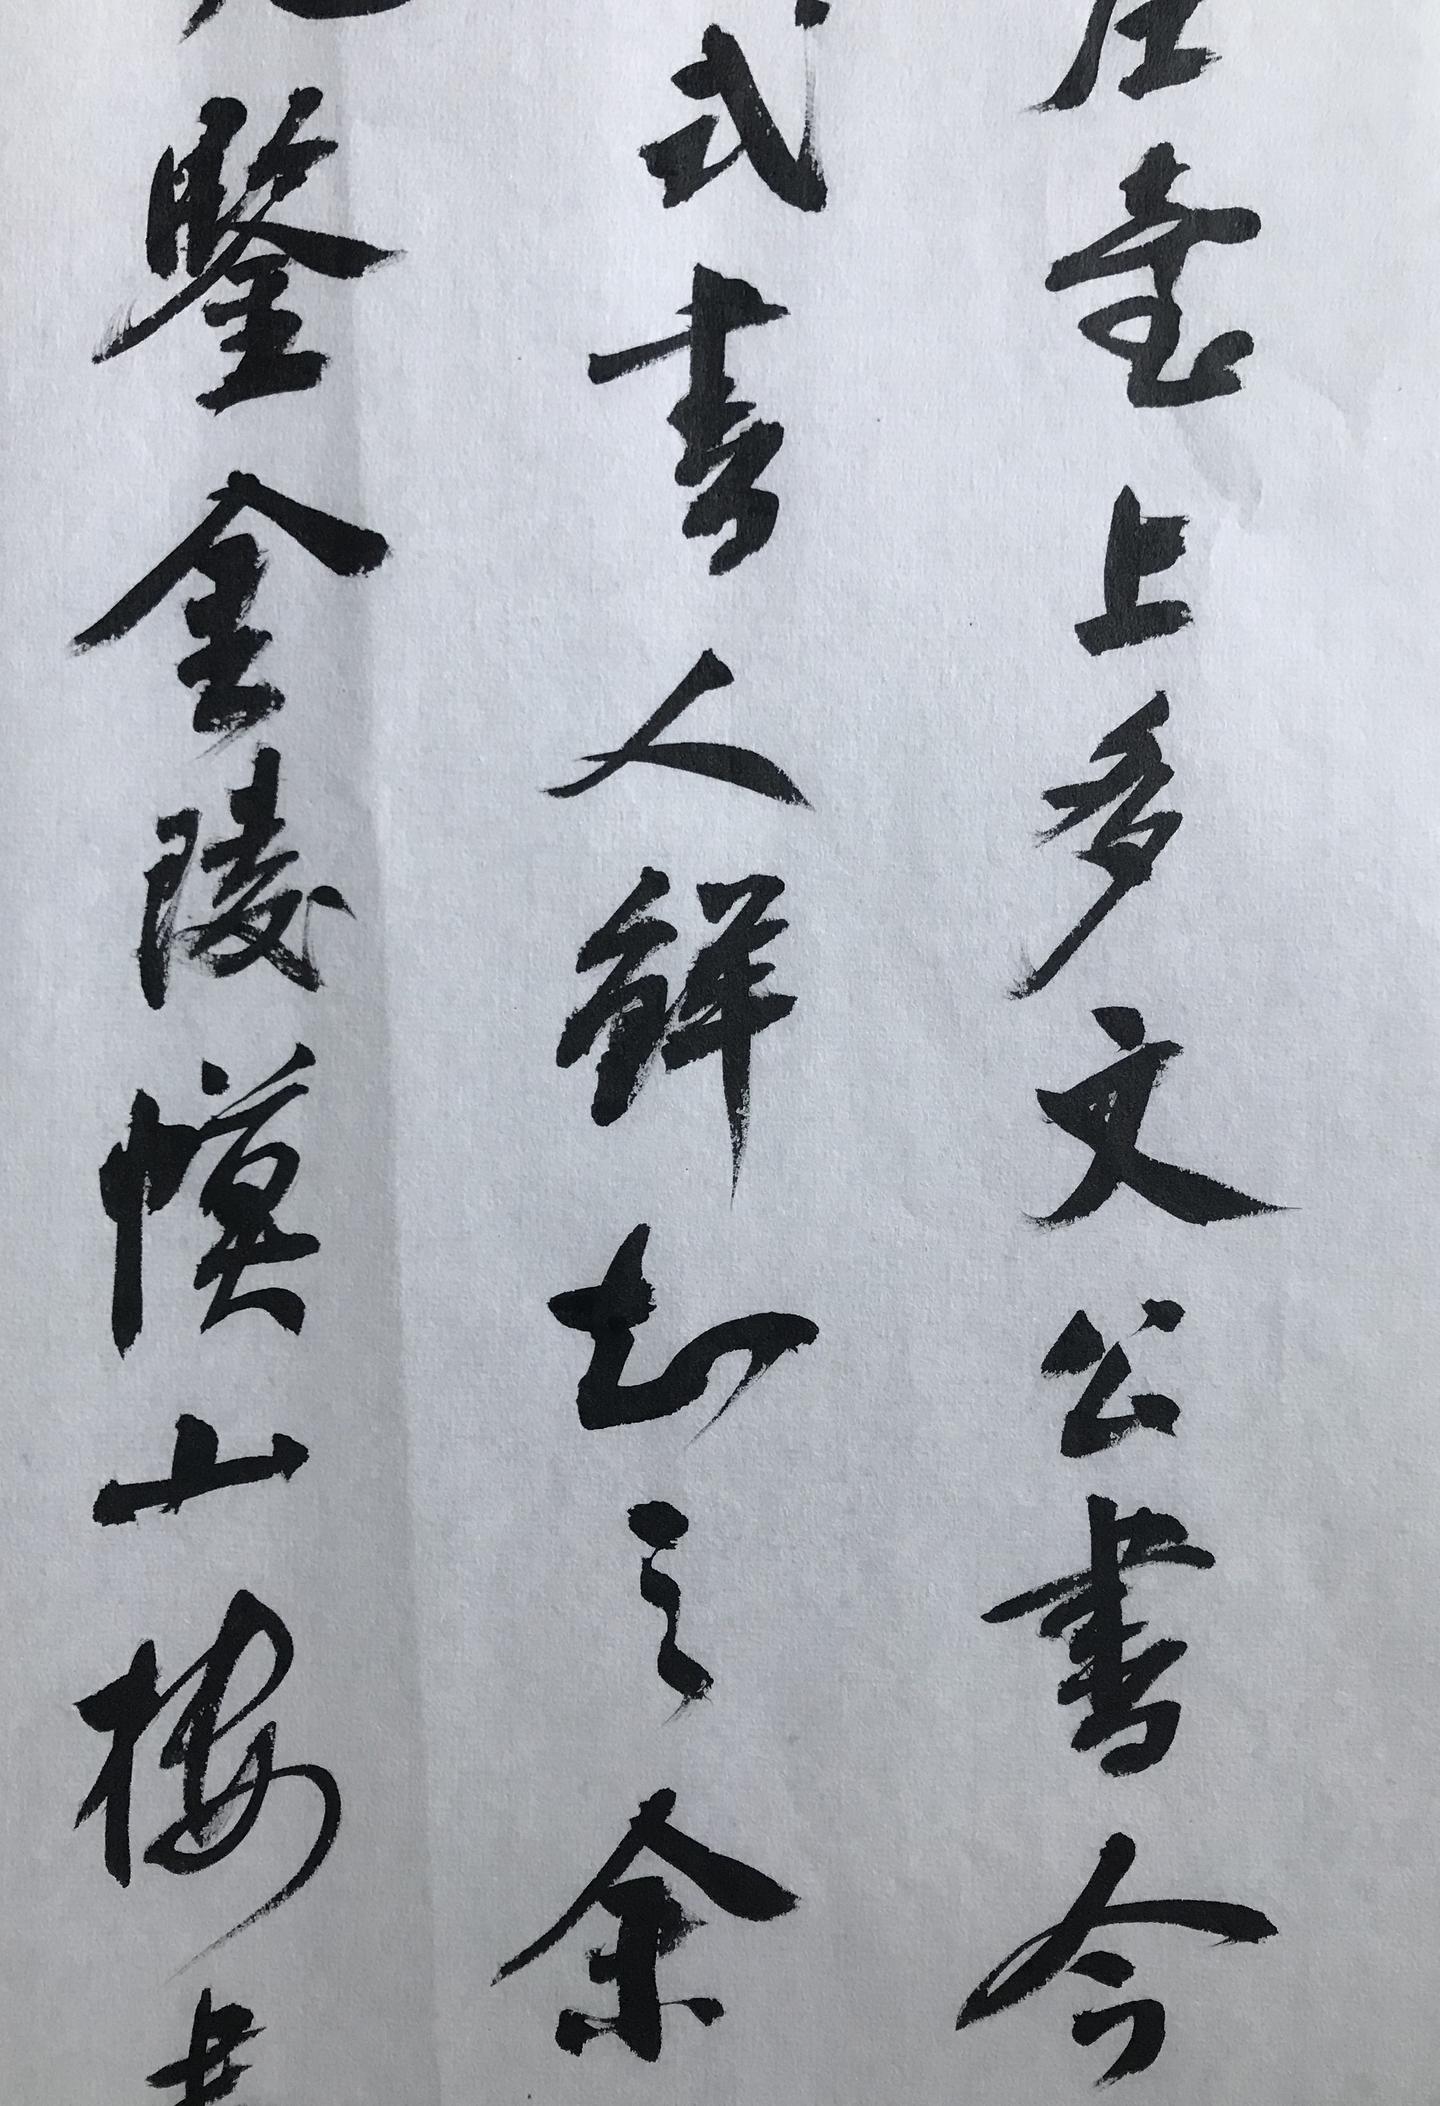 臺上多文公書今
式書人鮮知之余
鑒金陵幙山樓